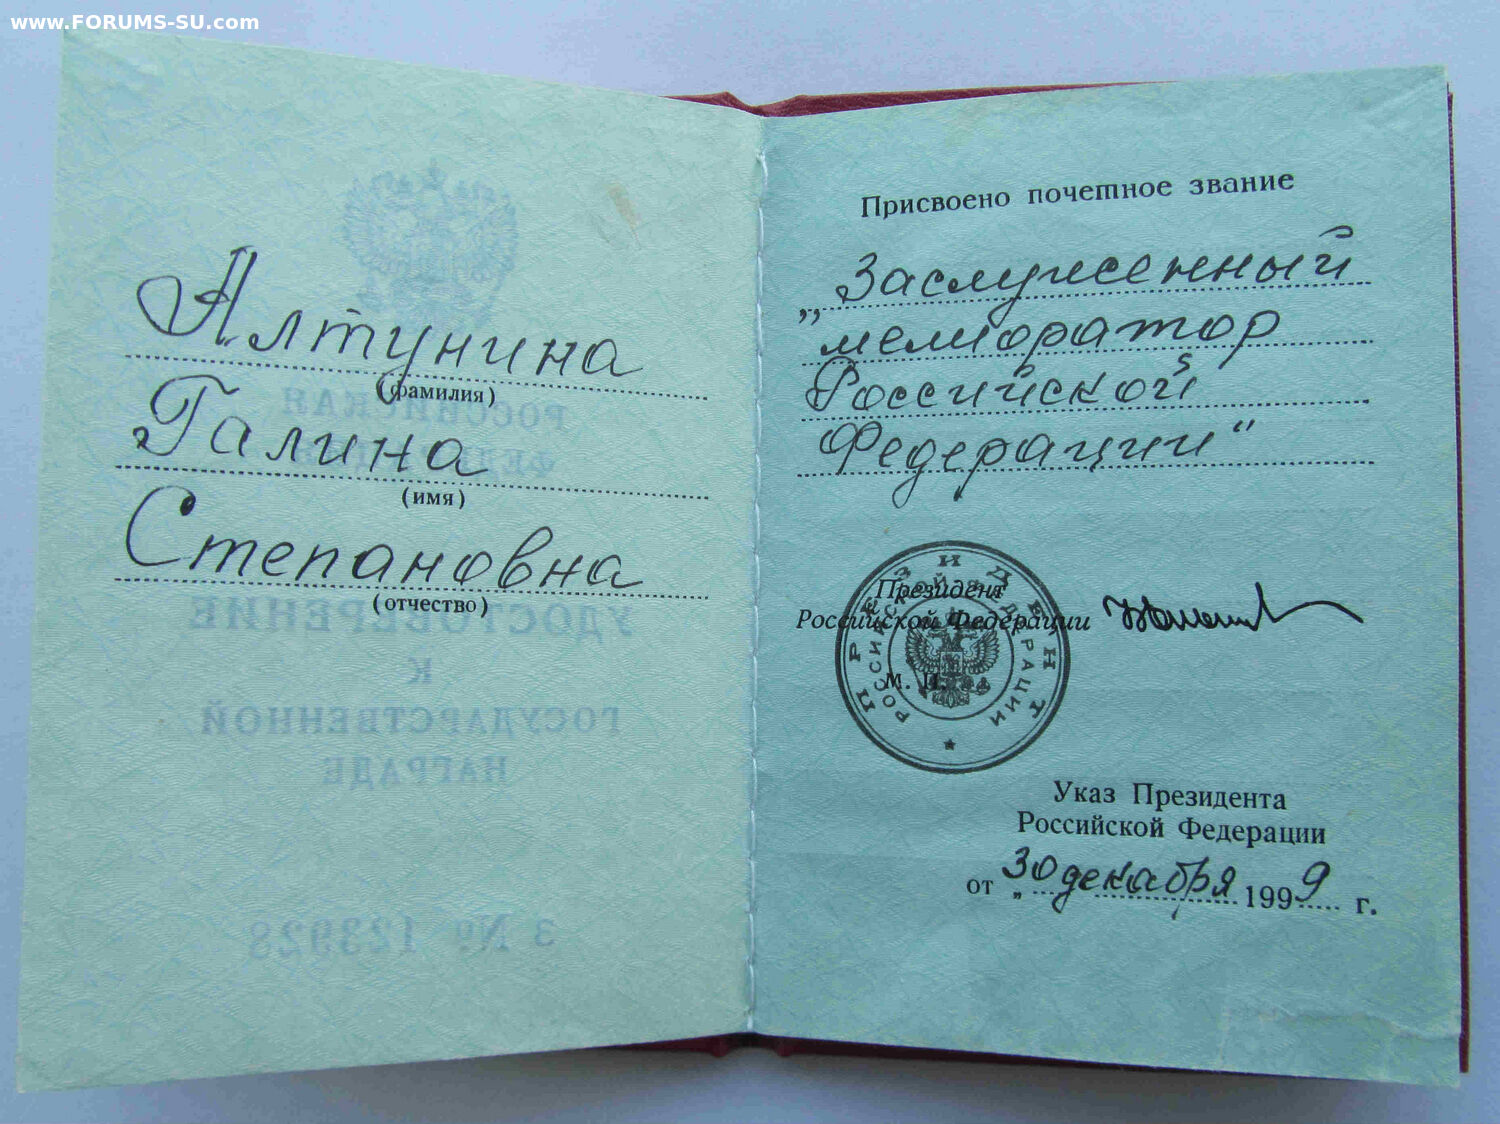 www.FORUMS-SU.com
Алтунина
(фамилия)
Галина
(имя)
Степановна
(отчество)
РОССИЙСКАЯ
ФЕДЕРАЦИЯ
УДОСТОВЕРЕНИЕ
К
ГОСУДАРСТВЕННОЙ
НАГРАДЕ
З № 123928
Присвоено почетное звание
„Заслуженный
мелиоратор
Российской
Федерации"
Президент
Российской Федерации
М. П.
ПРЕЗИДЕНТ
РОССИЙСКОЙ ФЕДЕРАЦИИ
Указ Президента
Российской Федерации
от „30 декабря 1999 г.